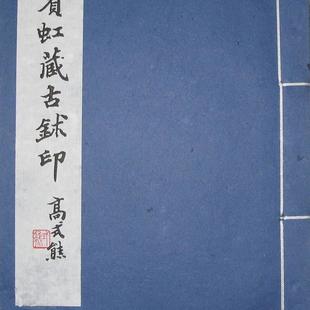 賓虹藏古鉥印
高式熊